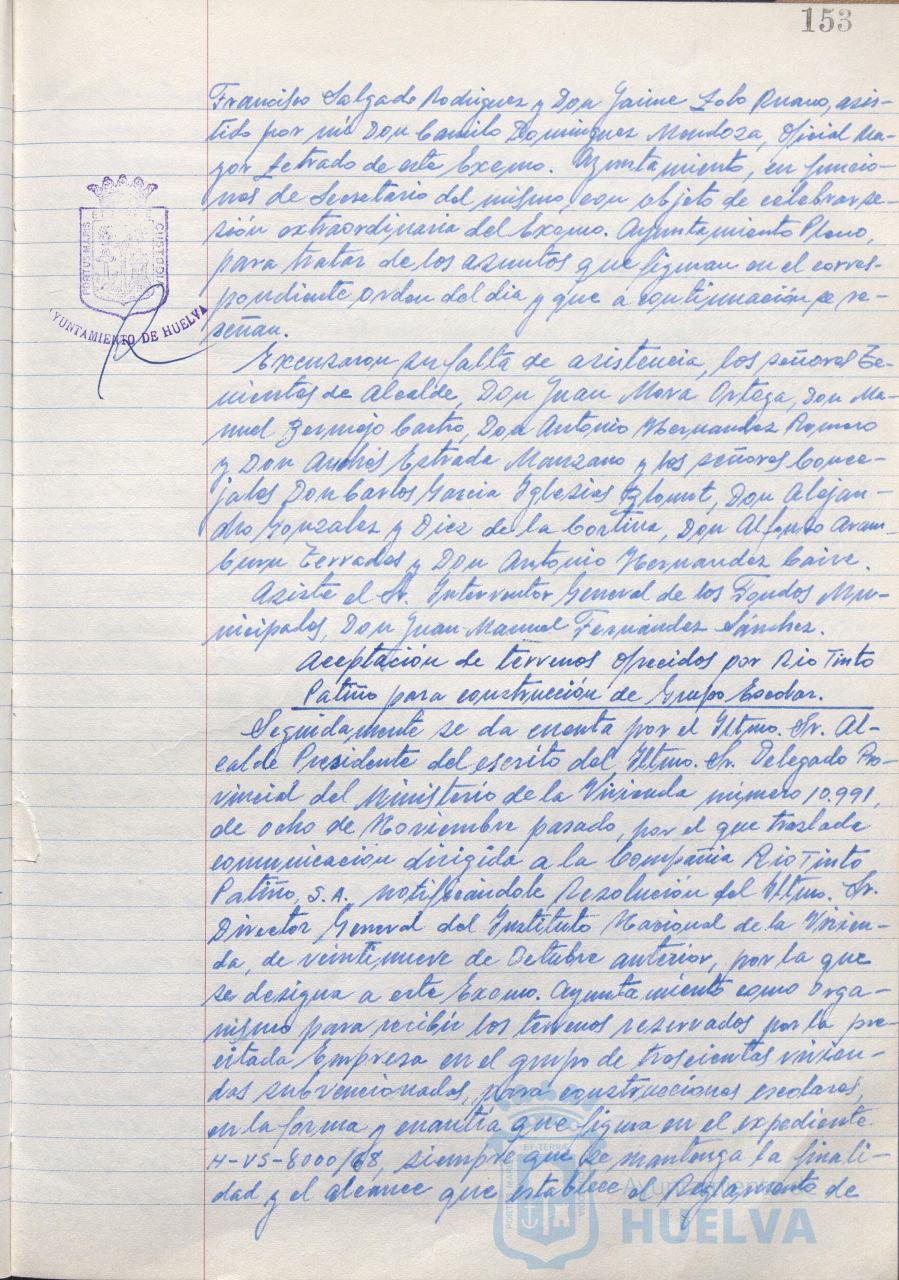 153
Francisco Salgado Rodriguez y Don Jaime Lobo Ruano, asis-
tido por mi Don Camilo Dominguez Mendoza, Oficial Ma-
yor Letrado de este Excmo. Ayuntamiento, en funcio-
nes de Secretario del mismo, con objeto de celebrar se-
sión extraordinaria del Excmo. Ayuntamiento Pleno,
para tratar de los asuntos que figuran en el corres-
pondiente orden del dia y que a continuación se re-
señan.
PORTUS MARIS ET TERRE CUSTODIA
AYUNTAMIENTO DE HUELVA
Excusaron su falta de asistencia, los señores Te-
nientes de Alcalde, Don Juan Mora Ortega, Don Ma-
nuel Bermejo Castro, Don Antonio Hernandez Romero
y Don Andrés Estrada Manzano y los señores Conce-
jales Don Carlos Garcia Iglesias, Don Alejan-
dro Gonzalez y Diez de la Cortina, Don Alfonso Aram-
buru Terrades y Don Antonio Hernandez Caire.
Asiste el Sr. Interventor General de los Fondos Mu-
nicipales, Don Juan Manuel Fernández Sánchez.
Aceptación de terrenos ofrecidos por Rio Tinto
Patiño para construcción de Grupo Escolar.
Seguidamente se da cuenta por el Iltmo. Sr. Al-
calde Presidente del escrito del Iltmo. Sr. Delegado Pro-
vincial del Ministerio de la Vivienda número 10.991,
de ocho de Noviembre pasado, por el que traslada
comunicación dirigida a la Compañia Rio Tinto
Patiño, S.A., notificándole Resolución del Iltmo. Sr.
Director General del Instituto Nacional de la Vivien-
da, de veintinueve de Octubre anterior, por la que
se designa a este Excmo. Ayuntamiento como Orga-
nismo para recibir los terrenos reservados por la pre-
citada Empresa en el grupo de trescientas vivien-
das subvencionadas, para construcciones escolares,
en la forma y cuantía que figura en el expediente
H-VS-8000/68, siempre que se mantenga la finali-
dad y el alcance que establece el Reglamento de
Ayuntamiento de
HUELVA